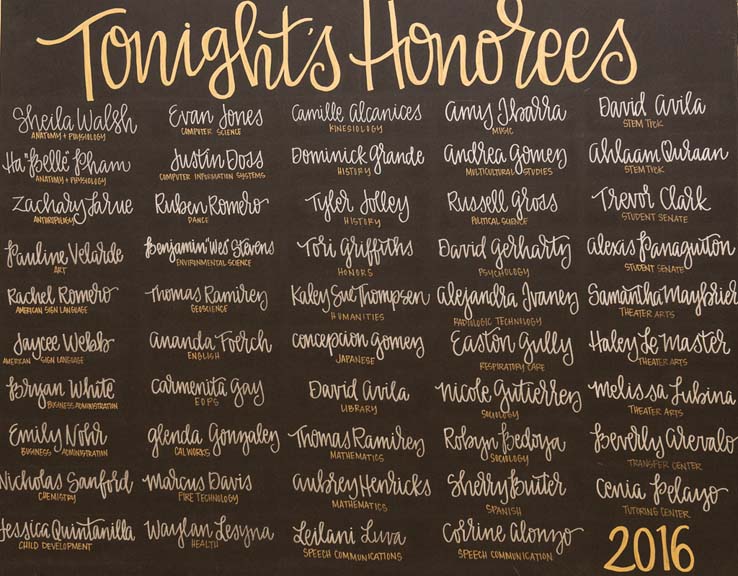 Tonight's Honorees
Sheila Walsh
ANATOMY + PHYSIOLOGY
Ha "Belle" Pham
ANATOMY + PHYSIOLOGY
Zachary Larue
ANTHROPOLOGY
Pauline Velarde
ART
Rachel Romero
AMERICAN SIGN LANGUAGE
Jaycee Webb
AMERICAN SIGN LANGUAGE
Bryan White
BUSINESS ADMINISTRATION
Emily Nohr
BUSINESS ADMINISTRATION
Nicholas Sanford
CHEMISTRY
Jessica Quintanilla
CHILD DEVELOPMENT
Evan Jones
COMPUTER SCIENCE
Justin Doss
COMPUTER INFORMATION SYSTEMS
Ruben Romero
DANCE
Benjamin "Wes" Stevens
ENVIRONMENTAL SCIENCE
Thomas Ramirez
GEOSCIENCE
Ananda Foerch
ENGLISH
Carmenita Gay
EOPS
Glenda Gonzalez
CALWORKS
Marcus Davis
FIRE TECHNOLOGY
Waylan Lesyna
HEALTH
Camille Alcanices
KINESIOLOGY
Dominick Grande
HISTORY
Tyler Jolley
HISTORY
Tori Griffiths
HONORS
Kaley Sue Thompsen
HUMANITIES
Concepcion Gomez
JAPANESE
David Avila
LIBRARY
Thomas Ramirez
MATHEMATICS
Aubrey Henricks
MATHEMATICS
Leilani Luva
SPEECH COMMUNICATIONS
Amy Ibarra
MUSIC
Andrea Gomez
MULTICULTURAL STUDIES
Russell Gross
POLITICAL SCIENCE
David Gerharty
PSYCHOLOGY
Alejandra Ivanez
RADIOLOGIC TECHNOLOGY
Easton Gully
RESPIRATORY CARE
Nicole Gutierrez
SOCIOLOGY
Robyn Bedoya
SOCIOLOGY
Sherry Buter
SPANISH
Corrine Alonzo
SPEECH COMMUNICATION
David Avila
STEM TREK
Ahlaam Quraan
STEM TREK
Trevor Clark
STUDENT SENATE
Alexis Panaguiton
STUDENT SENATE
Samantha Maybrier
THEATER ARTS
Haley Le Master
THEATER ARTS
Melissa Lubina
THEATER ARTS
Beverly Arevalo
TRANSFER CENTER
Cenia Pelayo
TUTORING CENTER
2016